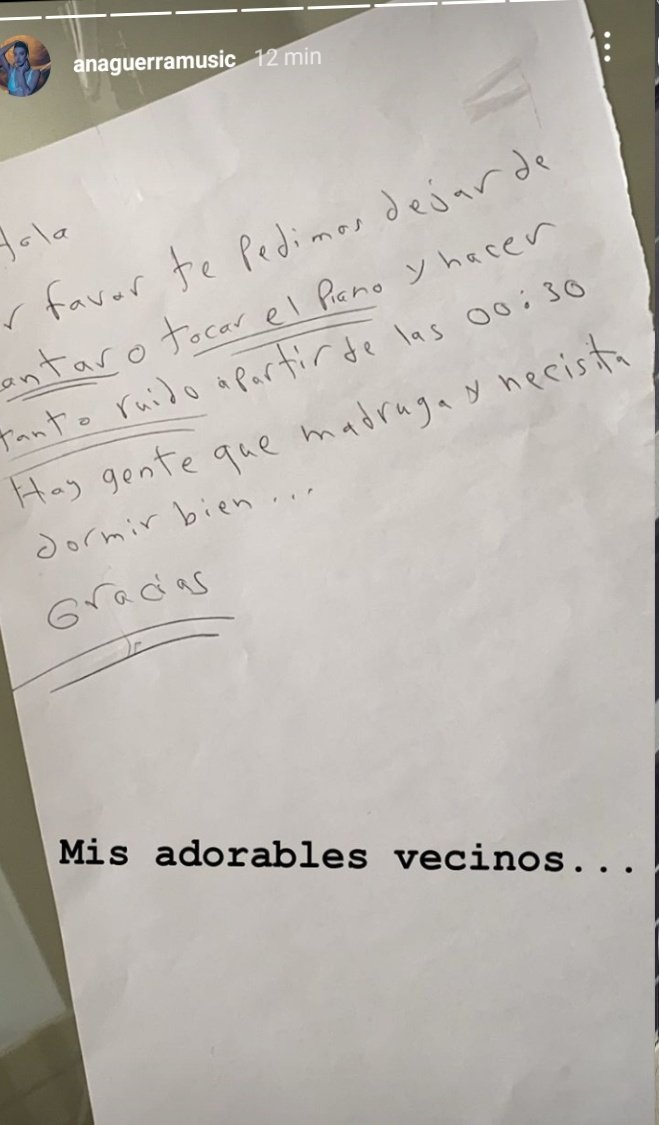 anaguerramusic 12 min
Hola
r favor te pedimos dejar de
antar o tocar el piano y hacer
tanto ruido apartir de las 00:30
Hay gente que madruga y necisita
dormir bien...
Gracias
Mis adorables vecinos...